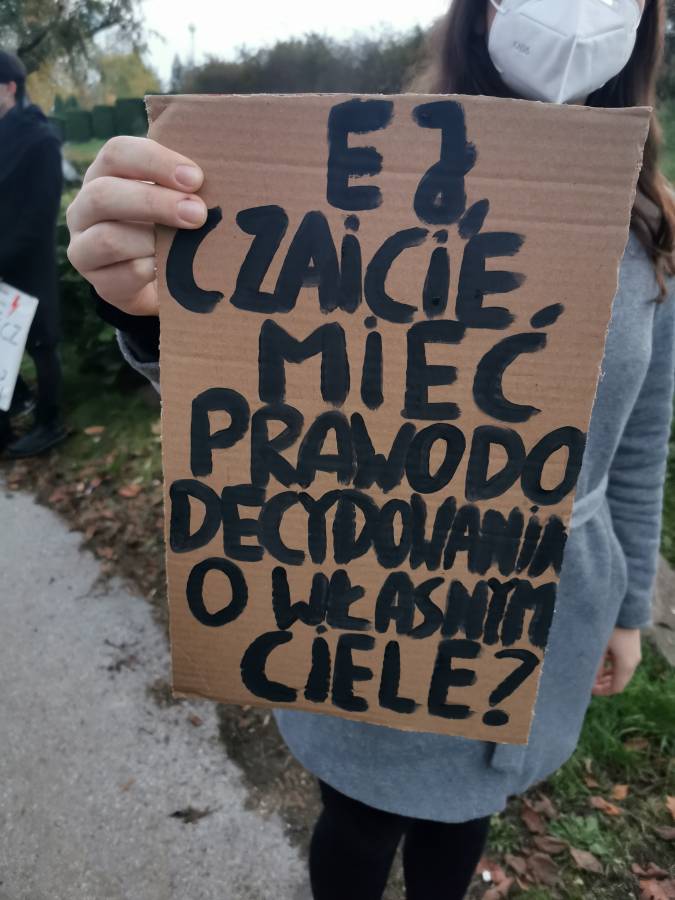 EJ,
CZAiCiE
MiEĆ
PRAWO DO
DECYDOWANiA
O WŁASNYM
CiELE?